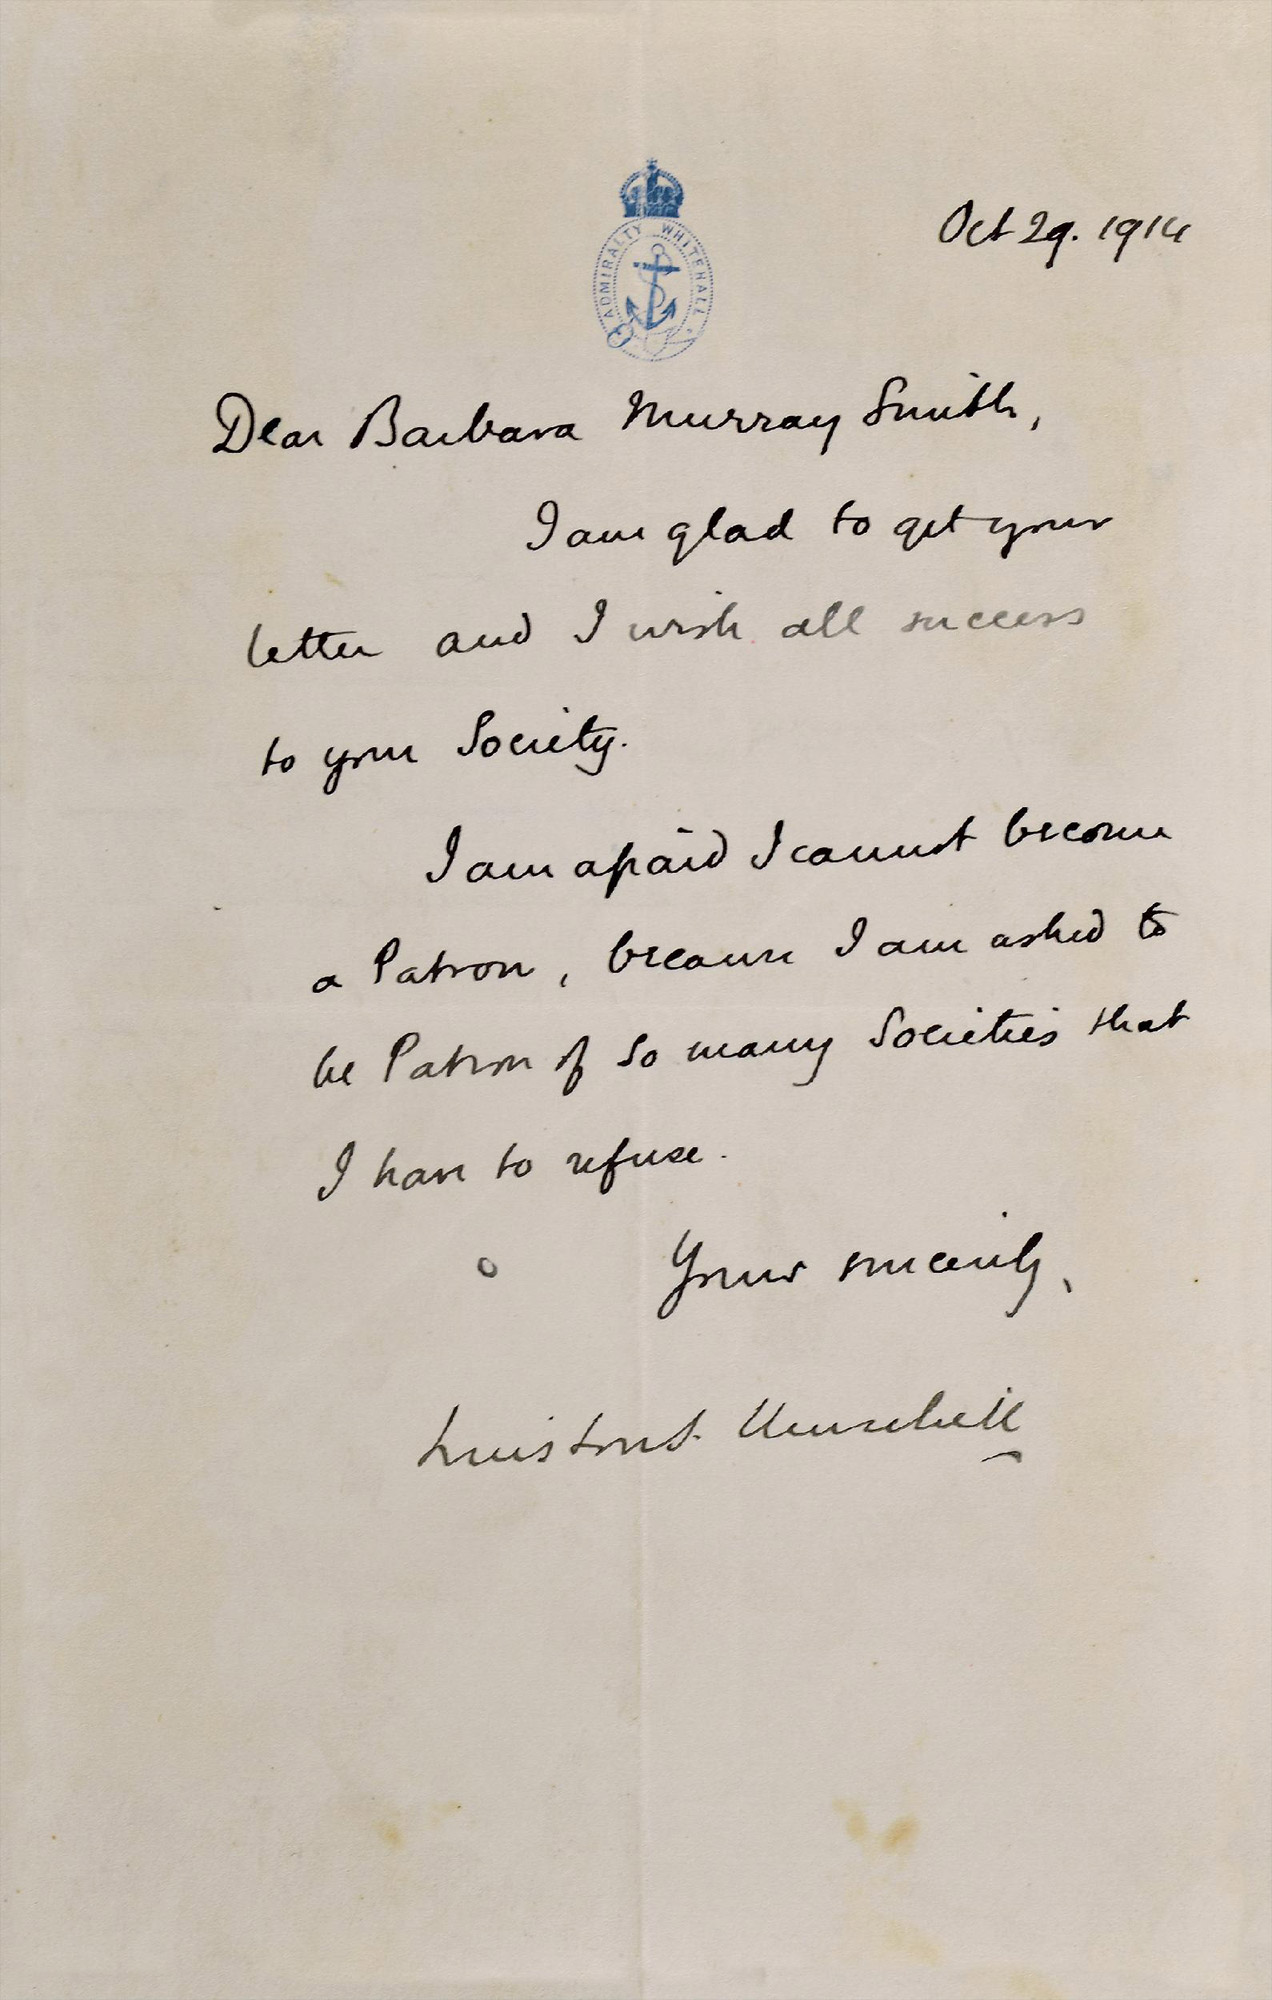 ADMIRALTY WHITEHALL
Oct 29. 1914
Dear Barbara Murray Smith,
I am glad to get your
letter and I wish all success
to your Society.
I am afraid I cannot become
a Patron, because I am asked to
be Patron of so many Societies that
I have to refuse.
Yours sincerely,
Winston S. Churchill